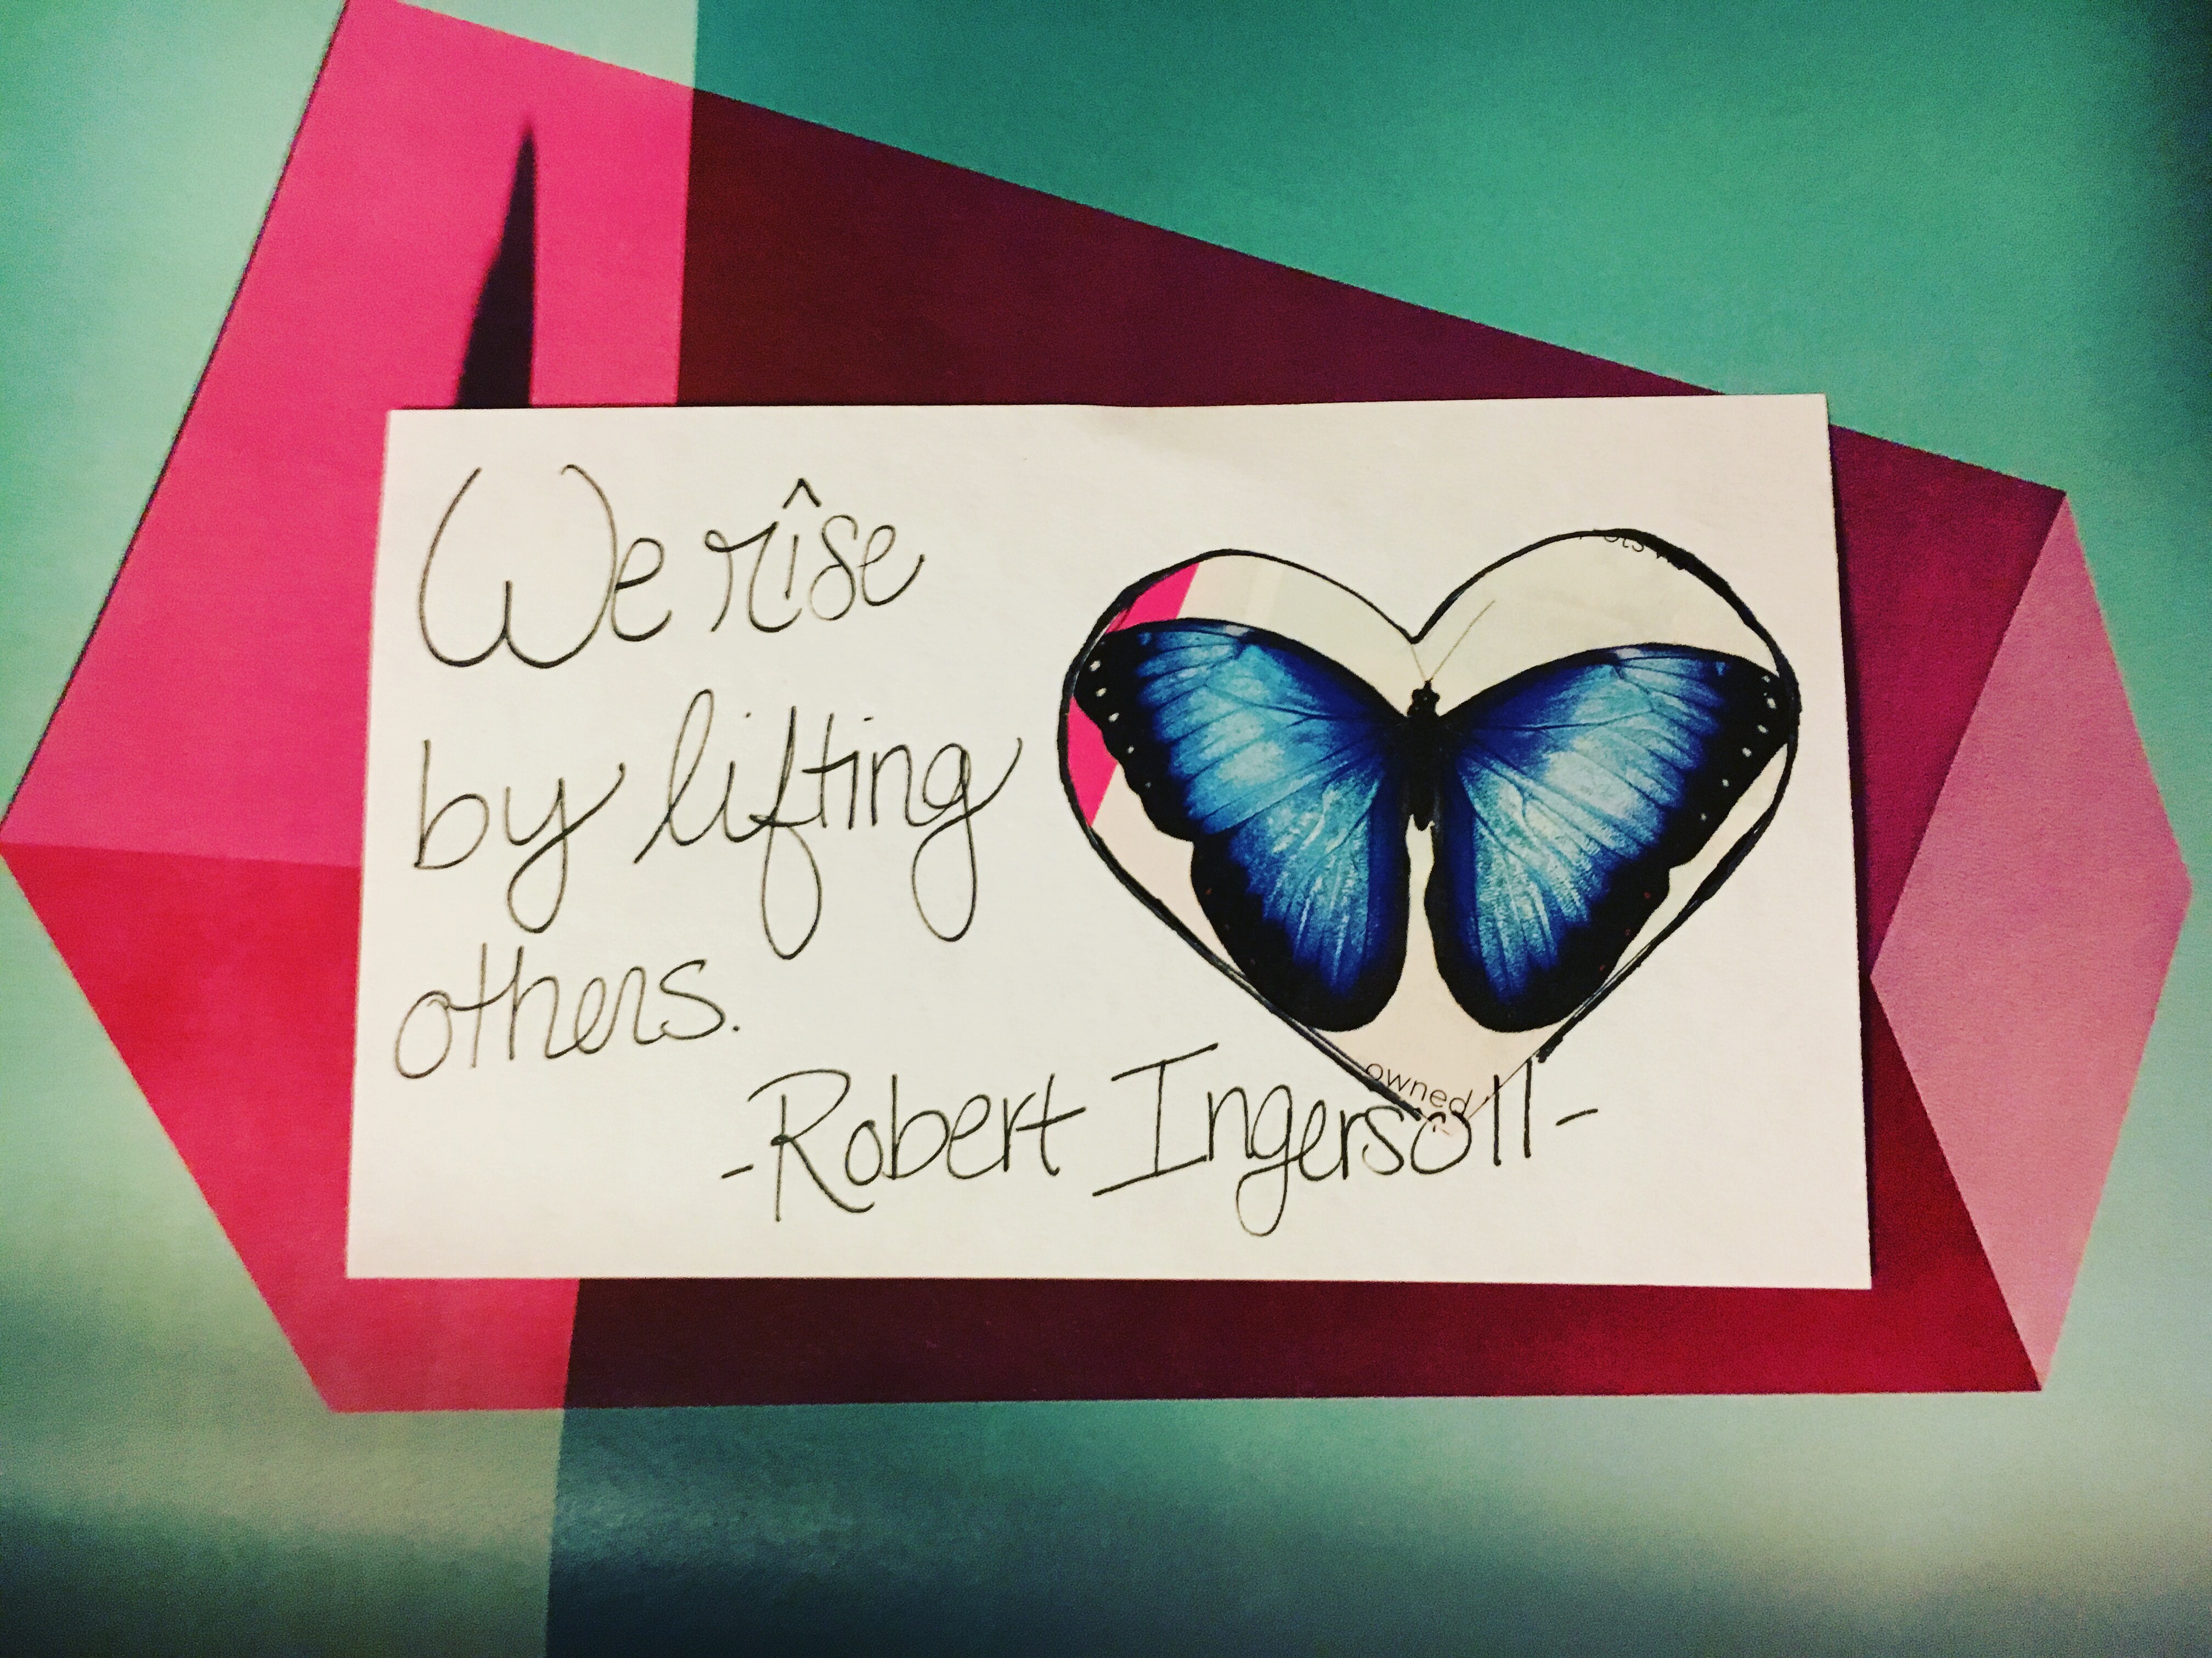 We rîse
by lifting
others.
-Robert Ingersoll-
owned